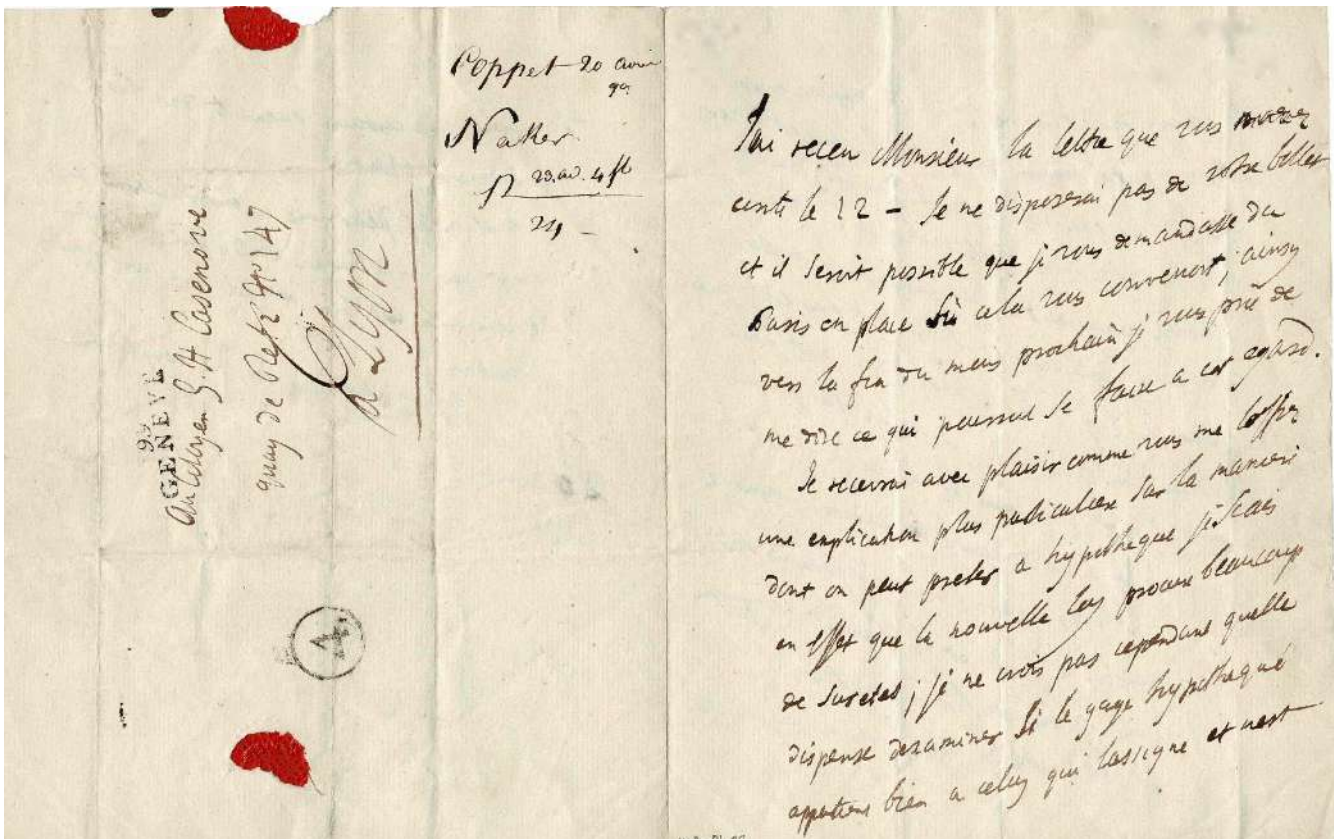 Coppet 20 avril
99
Necker
R 23. av. 4 fl
24 -
99
GENEVE
Au Citoyen G. H Casenove
quay de Retz No 47
a Lyon
4.
Jai receu Monsieur la lettre que vous mavez
ecrite le 12 - Je ne disposerai pas de votre billet
et il seroit possible que je vous demandasse du
Paris en place si cela vous convenoit; ainsy
vers la fin du mois prochain je vous prie de
me dire ce qui pourroit se faire a cet egard.
Je recevrai avec plaisir comme vous me loffrez
une explication plus particuliere sur la maniere
dont on peut preter a hypotheque je scais
en effet que la nouvelle loy procure beaucoup
de suretes; je ne crois pas cependant quelle
dispense dexaminer si le gage hypothequé
appartient bien a celuy qui lassigne et nest